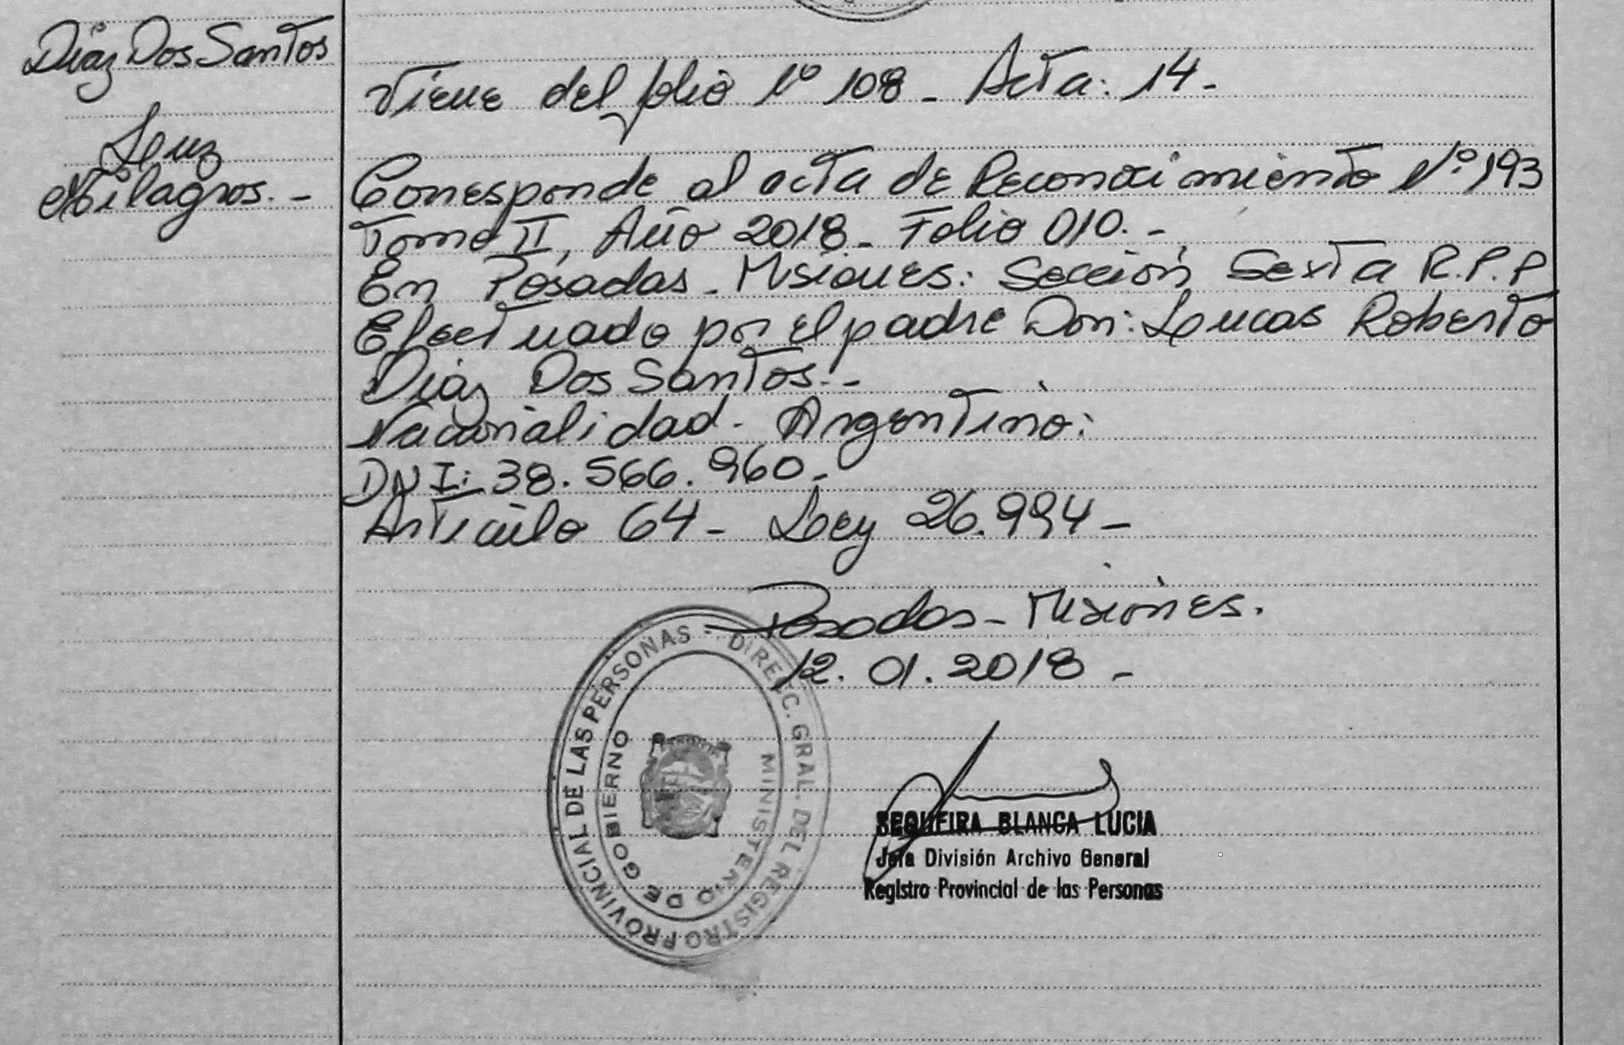 Díaz Dos Santos
Luz
Milagros.-
Viene del folio Nº 108 - Acta: 14.-
Corresponde al acta de Reconocimiento Nº: 193
Tomo II, Año 2018 - Folio 010.-
En Posadas - Misiones: Sección Sexta R.P.P
Efectuado por el padre Don: Lucas Roberto
Díaz Dos Santos.-
Nacionalidad - Argentino:
DNI: 38.566.960-
Artículo 64 - Ley 26.994 -
Posadas - Misiones.
12.01.2018 -
DIRECC. GRAL. DEL REGISTRO PROVINCIAL DE LAS PERSONAS -
MINISTERIO DE GOBIERNO
SEQUEIRA BLANCA LUCIA
Jefa División Archivo General
Registro Provincial de las Personas